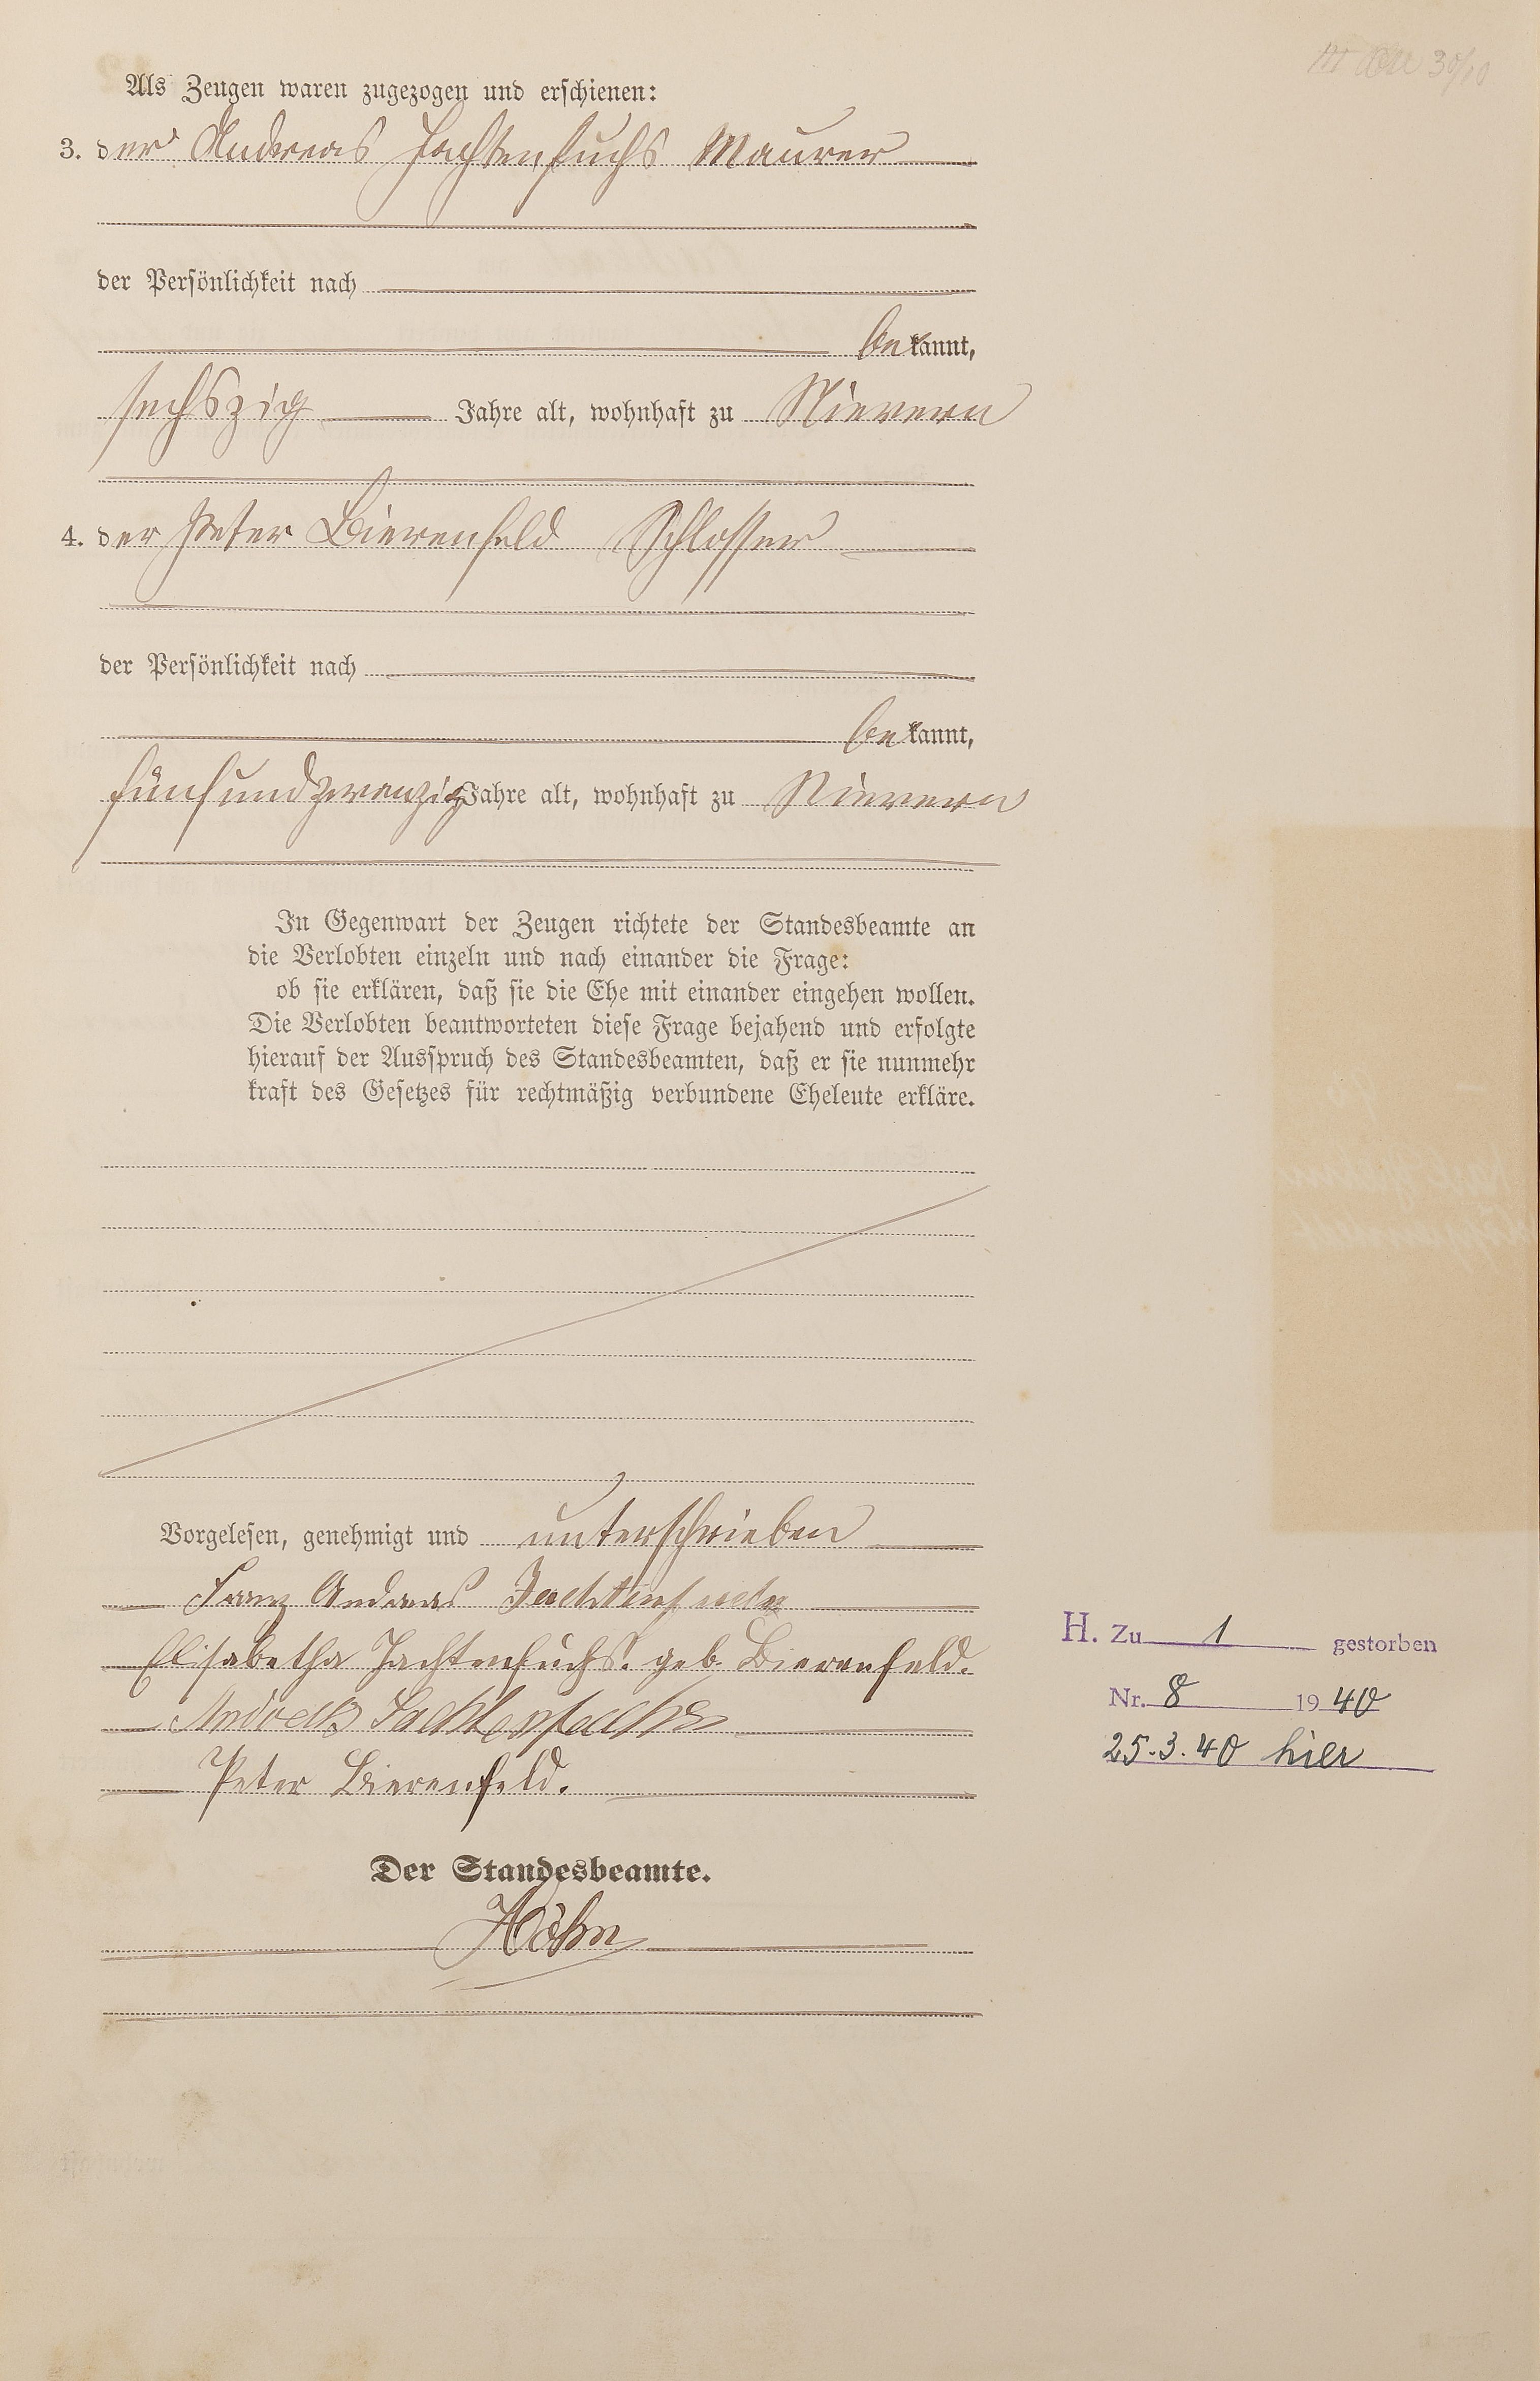 Als Zeugen waren zugezogen und erschienen:
3. der Andreas Jachtenfuchs Maurer
der Persönlichkeit nach
bekannt,
sechszig Jahre alt, wohnhaft zu Nievern
4. der Peter Bierenfeld Schlosser
der Persönlichkeit nach
bekannt,
fünfundzwanzig Jahre alt, wohnhaft zu Nievern
In Gegenwart der Zeugen richtete der Standesbeamte an
die Verlobten einzeln und nach einander die Frage:
ob sie erklären, daß sie die Ehe mit einander eingehen wollen.
Die Verlobten beantworteten diese Frage bejahend und erfolgte
hierauf der Ausspruch des Standesbeamten, daß er sie nunmehr
kraft des Gesetzes für rechtmäßig verbundene Eheleute erkläre.
Vorgelesen, genehmigt und unterschrieben
Franz Andreas Jachtenfuchs
Elisabetha Jachtenfuchs. geb. Bierenfeld.
Andreas Jachtenfuchs
Peter Bierenfeld.
Der Standesbeamte.
Höhn
H. Zu 1 gestorben
Nr. 8 1940
25.3.40 hier